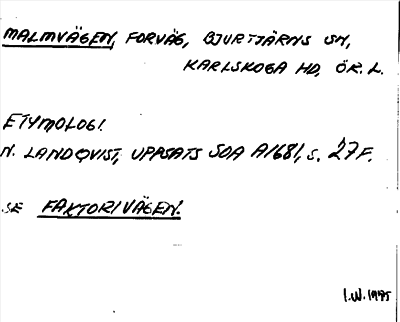 MALMVÄGEN, FORVÄG, BJURTJÄRNS SN,
KARLSKOGA HD, ÖR. L.
ETYMOLOGI.
N. LANDQVIST, UPPSATS SOA A1681, S. 27F.
SE FAKTORIVÄGEN.
I.W. 1975